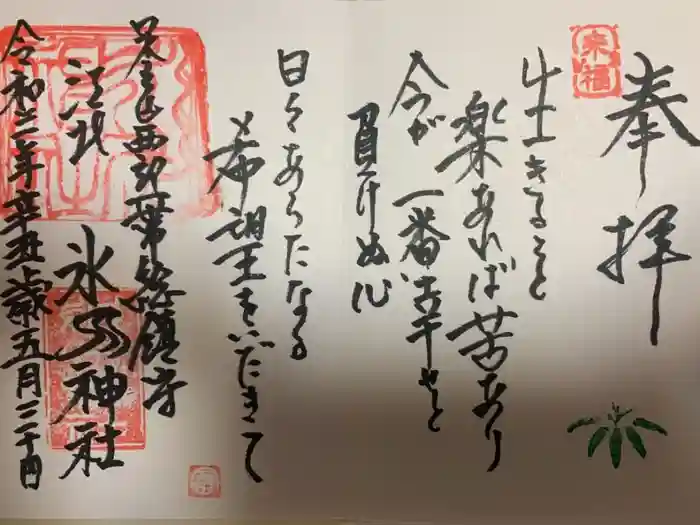 奉拝
来福
生きること
楽あれば苦あり
今が一番幸せと
負けぬ心
日々あらたなる
希望をいだきて
西部一帯総鎮守
江北 氷川神社
令和三年辛丑歳五月三十日